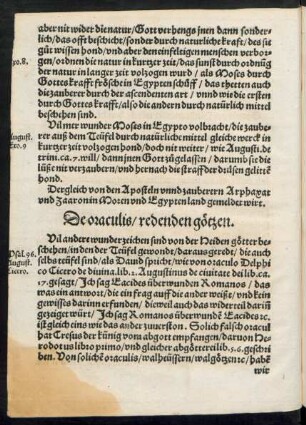 aber nit wider die natur/Gott verhengs jnen dann sonder-
lich/das offt beschicht/sonder durch natürliche krafft/des si
gůt wissen hond/vnd aber den einfeltigen menschen verbor-
gen/ordnen die natur in kurtzer zeit/das sunst durch ordnūg
der natur in langer zeit volzogen wurd/als Moses durch
xo.8.
Gottes krafft frösch in Egypten schůff/das thetten auch
die zauberer durch der ascendenten art/vnnd wie die ersten
durch Gottes krafft/also die andern durch natürlich mittel
beschehen sind.
Vil mer wunder Moses in Egypto volbracht/die zaube-
rer auß dem Teüfel durch natürlich mittel gleiche werck in
August.
kurtzer zeit volzogen hond/doch nit weiter/wie Augusti. de
trin. ca.7. will/dann jnen Gott zůgelassen/darumb sie die
lüß nit verzaubern/vnd herfür zur straff der dilsen gelitten
hond.
Dergleich von den Aposteln vnnd zaubetern Arphaxat
vnd Zaaron in Moren vnd Egypten land gemeldet wirt.
De oraculis/redenden götzen.
Vil ander wunderzeichen sind von der Heiden götter be-
Psal.96.
schehen/in den der Teüfel gewondt/daraus geredt/die auch
August.
selbs teüfel sind/als Dauid spricht/wie von oraculo Delphi
Cicero.
co Cicero de diuina.lib.2. Augustinus de ciuitate dei lib.ca.
17. gesagt/Ich sag Eacides überwunden Romanos/das
was ein antwort/die ein frag auff die ander weißt/vnd kein
gewisses darinn erfunden/die weil auch das widerteil darin
gezeiget würt/Ich sag Romanos überwundē Eacides ꝛc.
ist gleich eins wie das ander zůuerston. Solich falsch oracul
hat Cresus der künig vom abgott empfangen/daruon He-
rodotus libro primo/vnd gleicher abgötterei lib.5.6. geschri
ben. Von solichē oraculis/walheüssern/walgötzen ꝛc/habē
wir